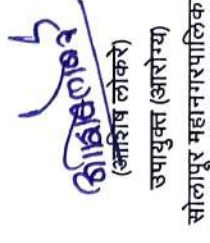 (आशिष लोकरे)
उपायुक्त (आरोग्य)
सोलापूर महानगरपालिक